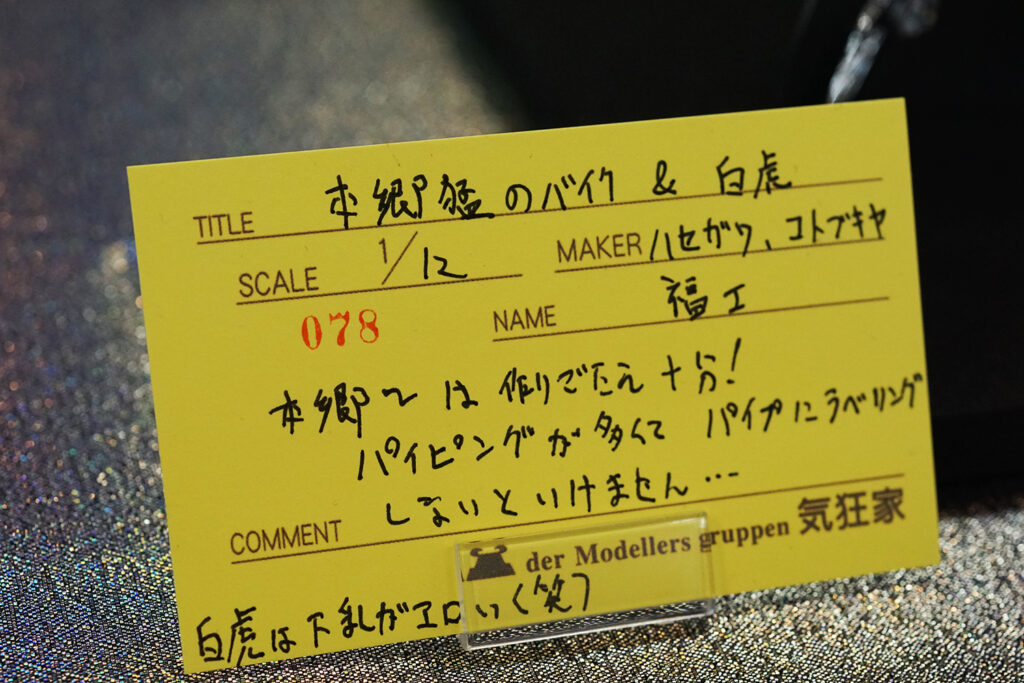 TITLE 本郷猛のバイク & 白虎
SCALE 1/12 MAKER ハセガワ、コトブキヤ
078 NAME 福工
本郷〜は作りごたえ十分!
パイピングが多くて パイプにラベリング
しないといけません…
COMMENT
der Modellers gruppen 気狂家
白虎は下乳がエロい(笑)